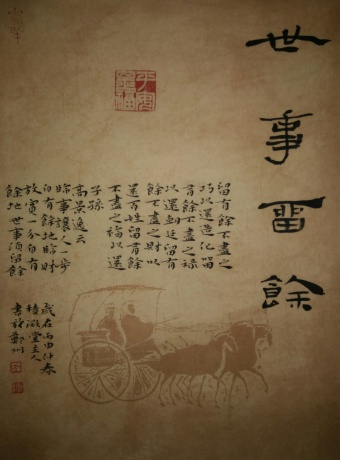 世事畱餘
留有餘不盡之
巧以還造化留
有餘不盡之祿
以還朝廷留有
餘不盡之財以
還百姓留有餘
不盡之福以還
子孫
高景逸云
臨事讓人一步
自有餘地臨財
放寬一分自有
餘地世事須留餘
歲在丙申仲春
堂主人
書於鄭州